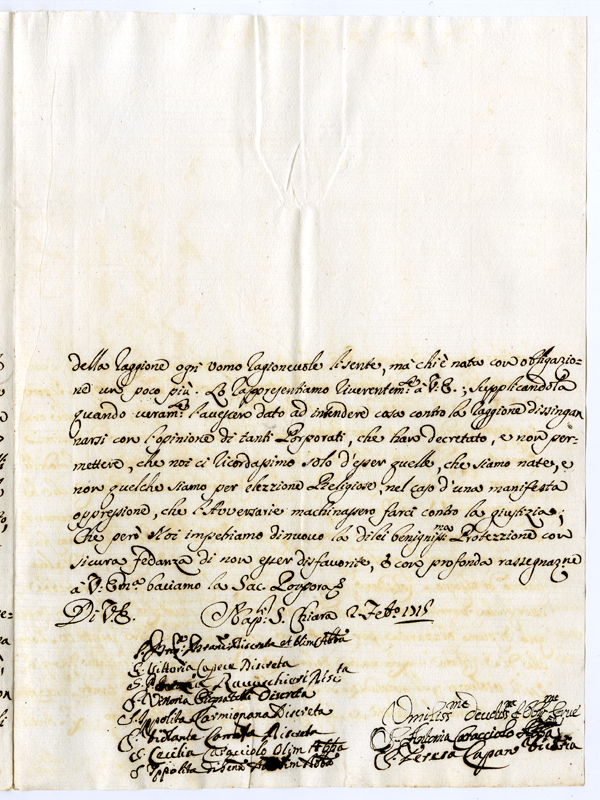 della raggione ogni uomo ragioneuole li sente, mà chi è nata con obligazio=
ne un poco più. Lo rappresentiamo riuerentem.te à V.E., supplicandola
quando ueram.te l'auessero dato ad intendere cosa contro la raggione disingan
narsi con l'opinione di tanti Porporati, che han decretato, e non per=
mettere, che noi ci ricordassimo solo d'esser quelle, che siamo nate, e
non quelche siamo per elezzione Religiose, nel caso d'una manifesta
oppressione, che l'Auuersarie machinassero farci contro la giustizia;
Che però Noi impetiamo di nuouo la di lei benignis.ma Protezzione con
sicura fidanza di non esser disfauorite, & con profonda rassegnazne
à V. Em.a baciamo la Sac. Porpora
Di V.E. Nap. S. Chiara 2 Feb.o 1715
Discreta et olim Abb.a
S. Vittoria Capece Discreta
S. Rauaschieri Disc.ta
S. Pignatelli Discreta
S. Ippolita Carmignana Discreta
S. Carrafa Discreta
S. Cecilia Caracciolo Olim Abb.a
S. Ippolita olim Abb.a
Umiliss.me deuotis.me
S. Antonia Caracciolo Abb.a
S. Teresa Capan Vicaria